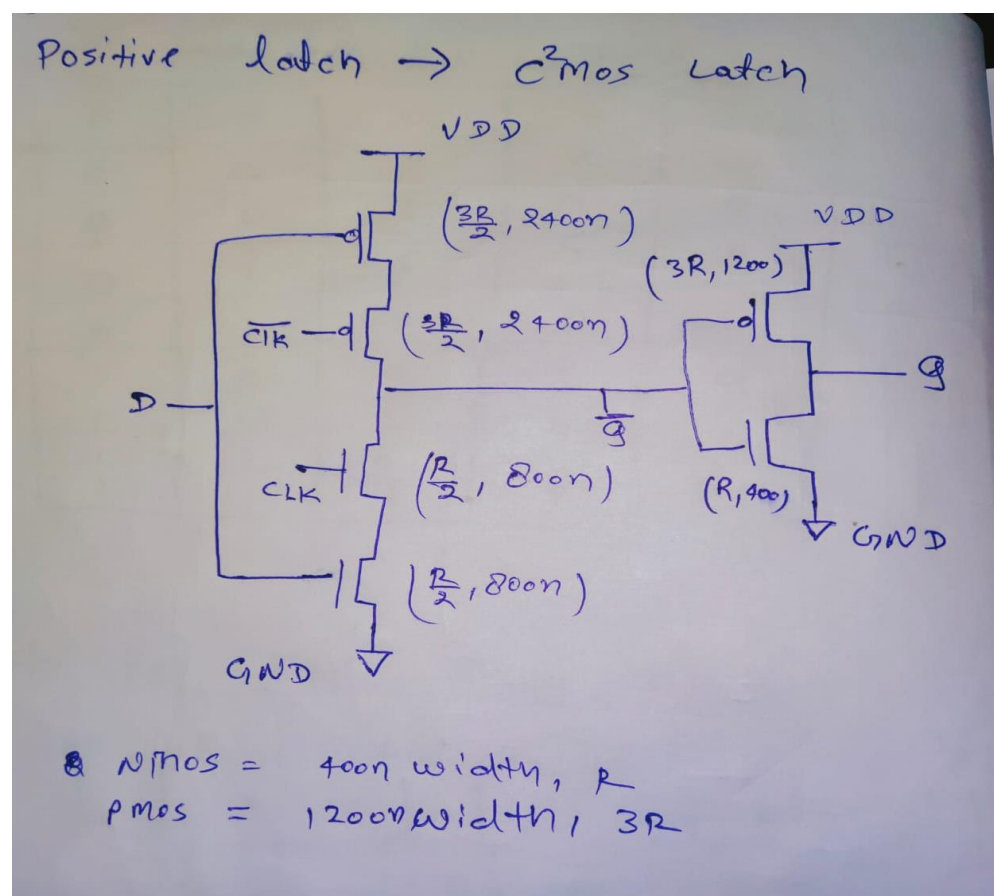 Positive latch → C²MOS Latch
VDD
(3R/2, 2400n)
VDD
(3R, 1200)
C̅l̅k̅
(3R/2, 2400n)
D
Q
Q̅
CLK
(R/2, 800n)
(R, 400)
GND
(R/2, 800n)
GND
NMOS = 400n width, R
PMOS = 1200n width, 3R